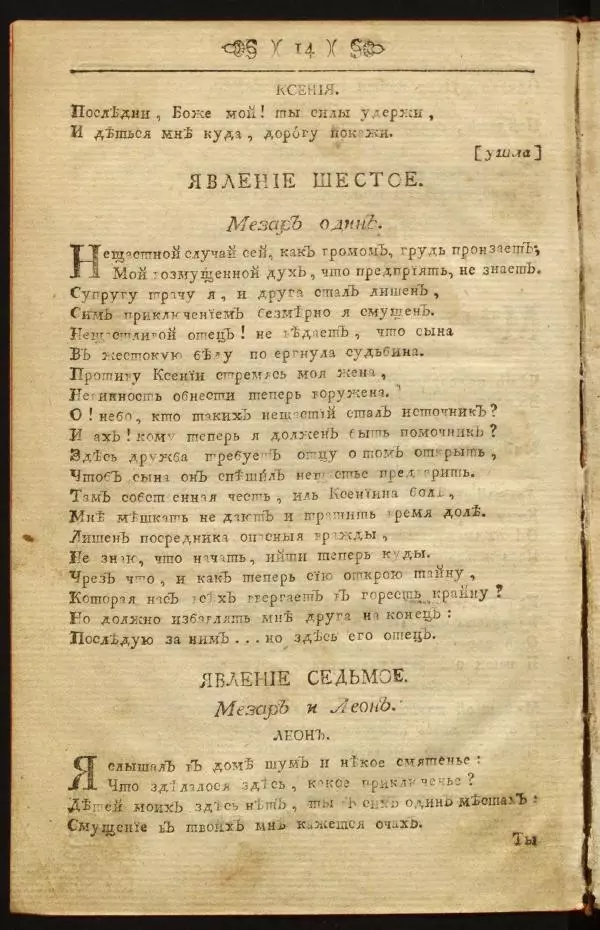 )( 14 )(
КСЕНІЯ.
Послѣдни, Боже мой! ты силы удержи,
И дѣться мнѣ куда, дорогу покажи.
[ушла]
ЯВЛЕНІЕ ШЕСТОЕ.
Мезаръ одинъ.
Нещастной случай сей, какъ громомъ, грудь пронзаетъ;
Мой возмущенной духъ, что предпріять, не знаетъ.
Супругу трачу я, и друга сталъ лишенъ,
Симъ приключеніемъ безмѣрно я смущенъ.
Нещастливой отецъ! не вѣдаетъ, что сына
Въ жестокую бѣду повергнула судьбина.
Противу Ксеніи стремясь моя жена,
Невинность обнести теперь воружена.
О! небо, кто такихъ нещастій сталъ источникъ?
И ахъ! кому теперь я долженъ быть помочникъ?
Здѣсь дружба требуетъ отцу о томъ открыть,
Чтобъ сына онъ спѣшилъ нещастье предварить.
Тамъ собственная честь, иль Ксеніина болѣ,
Мнѣ мѣшкать не даютъ и тратить время долѣ.
Лишенъ посредника опасныя вражды,
Не знаю, что начать, ийти теперь куды.
Чрезъ что, и какъ теперь сію открою тайну,
Которая насъ всѣхъ ввергаетъ въ горесть крайну?
Но должно избавлять мнѣ друга на конецъ:
Послѣдую за нимъ... но здѣсь его отецъ.
ЯВЛЕНІЕ СЕДЬМОЕ.
Мезаръ и Леонъ.
ЛЕОНЪ.
Я слышалъ въ домѣ шумъ и нѣкое смятенье:
Что здѣлалося здѣсь, какое приключенье?
Дѣтей моихъ здѣсь нѣтъ, ты въ сихъ одинъ мѣстахъ:
Смущеніе въ твоихъ мнѣ кажется очахъ.
Ты